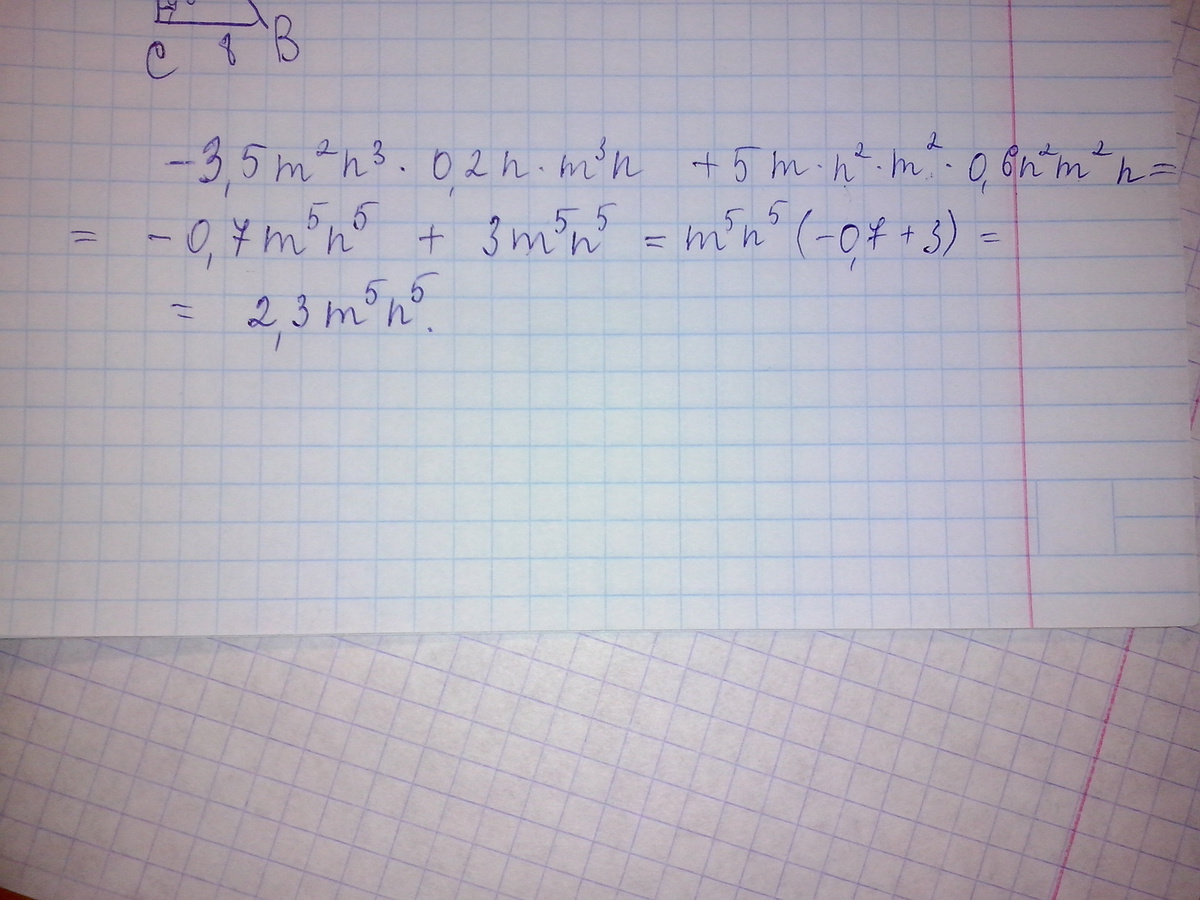 C 8 B
-3,5m²n³ · 0,2n · m³n + 5m · n² · m² · 0,6n²m²n =
= -0,7m⁵n⁵ + 3m⁵n⁵ = m⁵n⁵(-0,7+3) =
= 2,3m⁵n⁵.